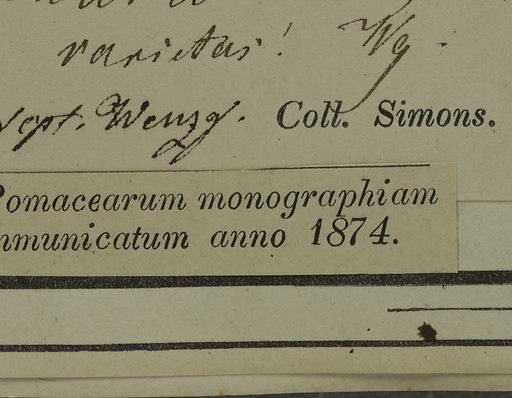 varietas! Wg.
Sept. Wenzg. Coll. Simons.
Pomacearum monographiam
mmunicatum anno 1874.